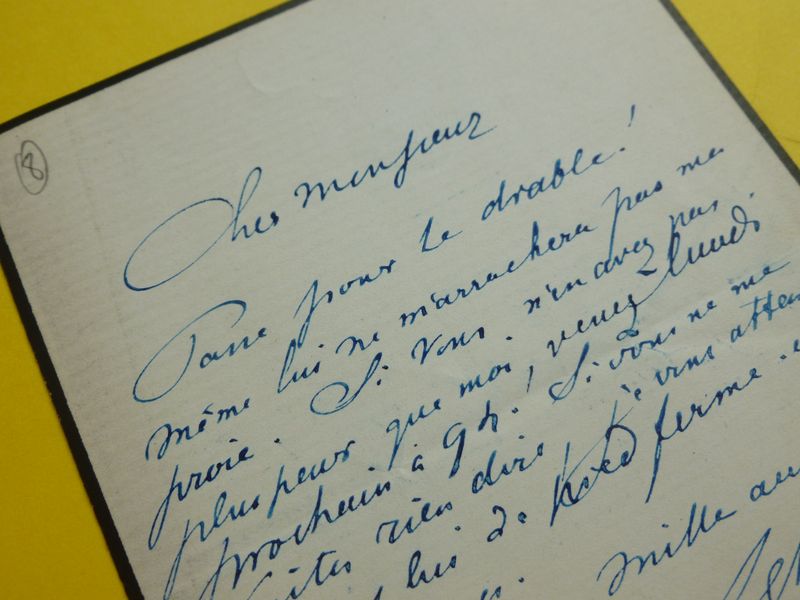 8
Cher Monsieur
Passe pour le diable!
même lui ne m'arrachera pas ma
proie. Si vous n'en avez pas
plus peur que moi, venez lundi
prochain à 9h! Si vous ne me
faites rien dire, je vous atten
lui de pied ferme.
Mille